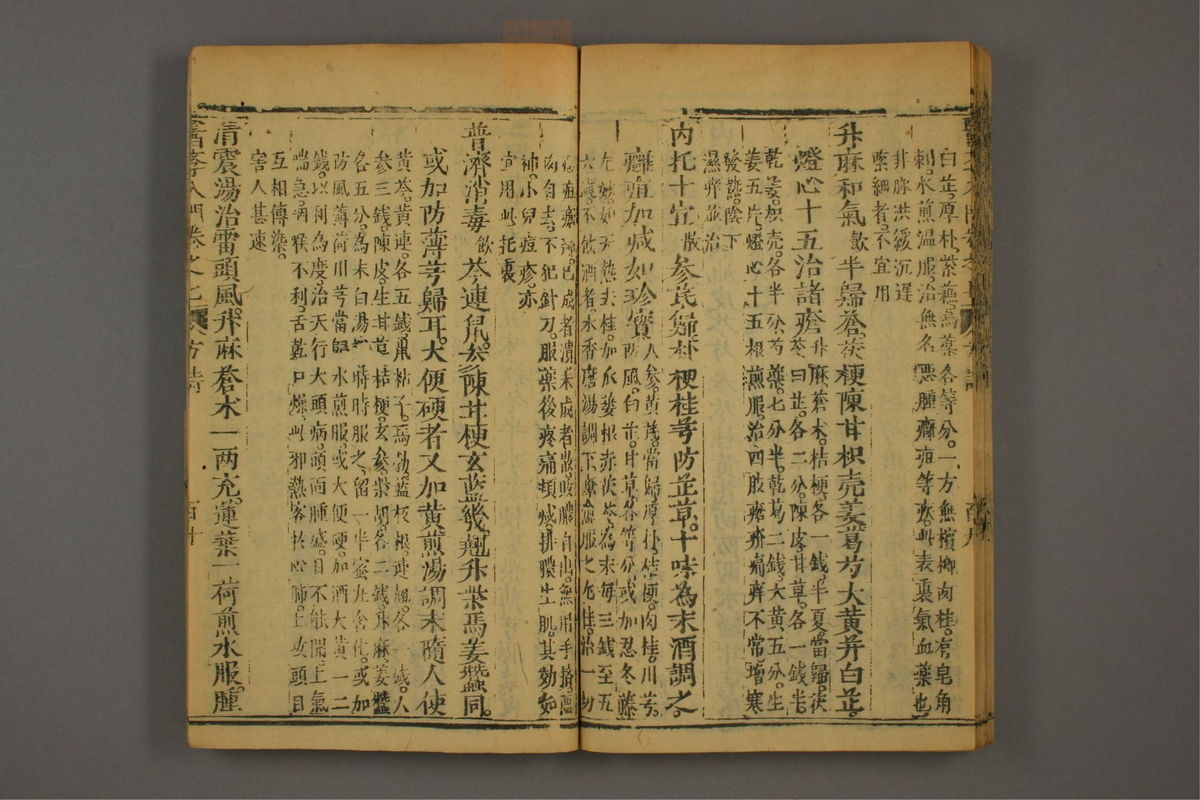 白芷厚朴紫蘇烏藥各等分。一方無檳榔肉桂。有皂角
刺。水煎溫服。治無名惡腫癰疽等瘡。此表裏氣血藥也
非脉洪緩沉遲
緊細者。不宜用
升麻和氣飲半歸蒼茯梗陳甘枳壳姜葛芍大黃并白芷。
燈心十五治諸瘡升麻蒼朮。桔梗。各一錢。半夏當歸。茯
苓白芷。各二分。陳皮甘草。各一錢半。
乾姜。枳壳。各半分。芍藥。七分半。乾葛二錢。大黃五分。生
姜五片。燈心十五根煎服。治四肢瘡疥痛痒不常。增寒
發熱。陰下
濕痒並治
內托十宣散參芪歸朴梗桂芎防芷草。十味為末酒調之。
癰疽加減如珍寶人參。黃茋。當歸厚朴。桔梗。肉桂。川芎。
防風。白芷。甘草。各等分。或加忍冬藤
尤妙。如天熱去桂。加瓜蔞根赤茯苓。為末每三錢至五
六錢。不飲酒者。木香磨湯調下。
自去。不犯針刀。服藥後疼痛頓減。排膿生肌。其効如
神。小兒痘疹。亦
宜用此托裏
普濟消毒飲芩連鼠參陳甘梗玄藍幾。翹升柴馬姜蠶同。
或加防薄芎歸耳。大便硬者又加黃煎湯調末隨人使
黃芩。黃連。各五錢。鼠粘子。馬勃藍板根。連翹。各一錢。人
參三錢。陳皮。生甘草桔梗。玄參柴胡。各二錢。升麻姜蠶
各五分。為末白湯時時服之。留一半蜜丸含化。或加
防風薄荷川芎當歸水煎服。或大便硬。加酒大黃一二
錢。以利為度。治天行大頭病。頭面腫盛。目不能開上氣
喘急。病喉不利。舌乾口燥。此邪熱客於心肺。上攻頭目
互相傳染。
害人甚速
清震湯治雷頭風。升麻蒼朮一两充。蓮葉一荷煎水服。腫
醫學入門卷之七
百十